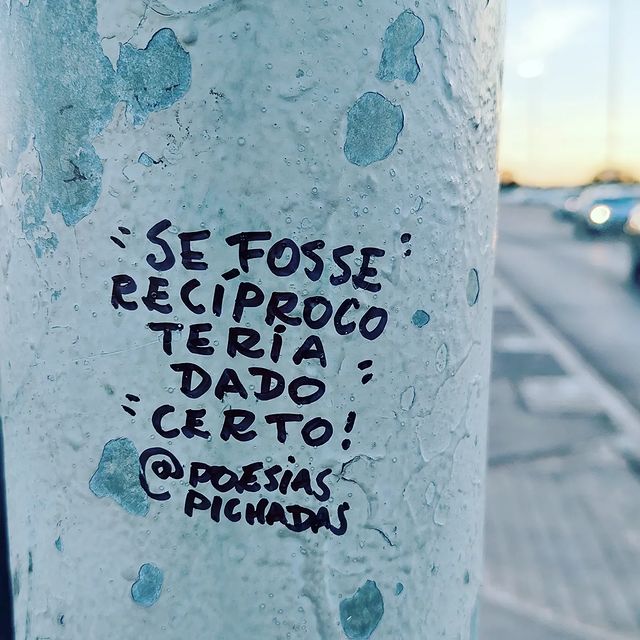 "SE FOSSE"
RECÍPROCO
TERIA
DADO"
"CERTO!
@POESIAS
PICHADAS